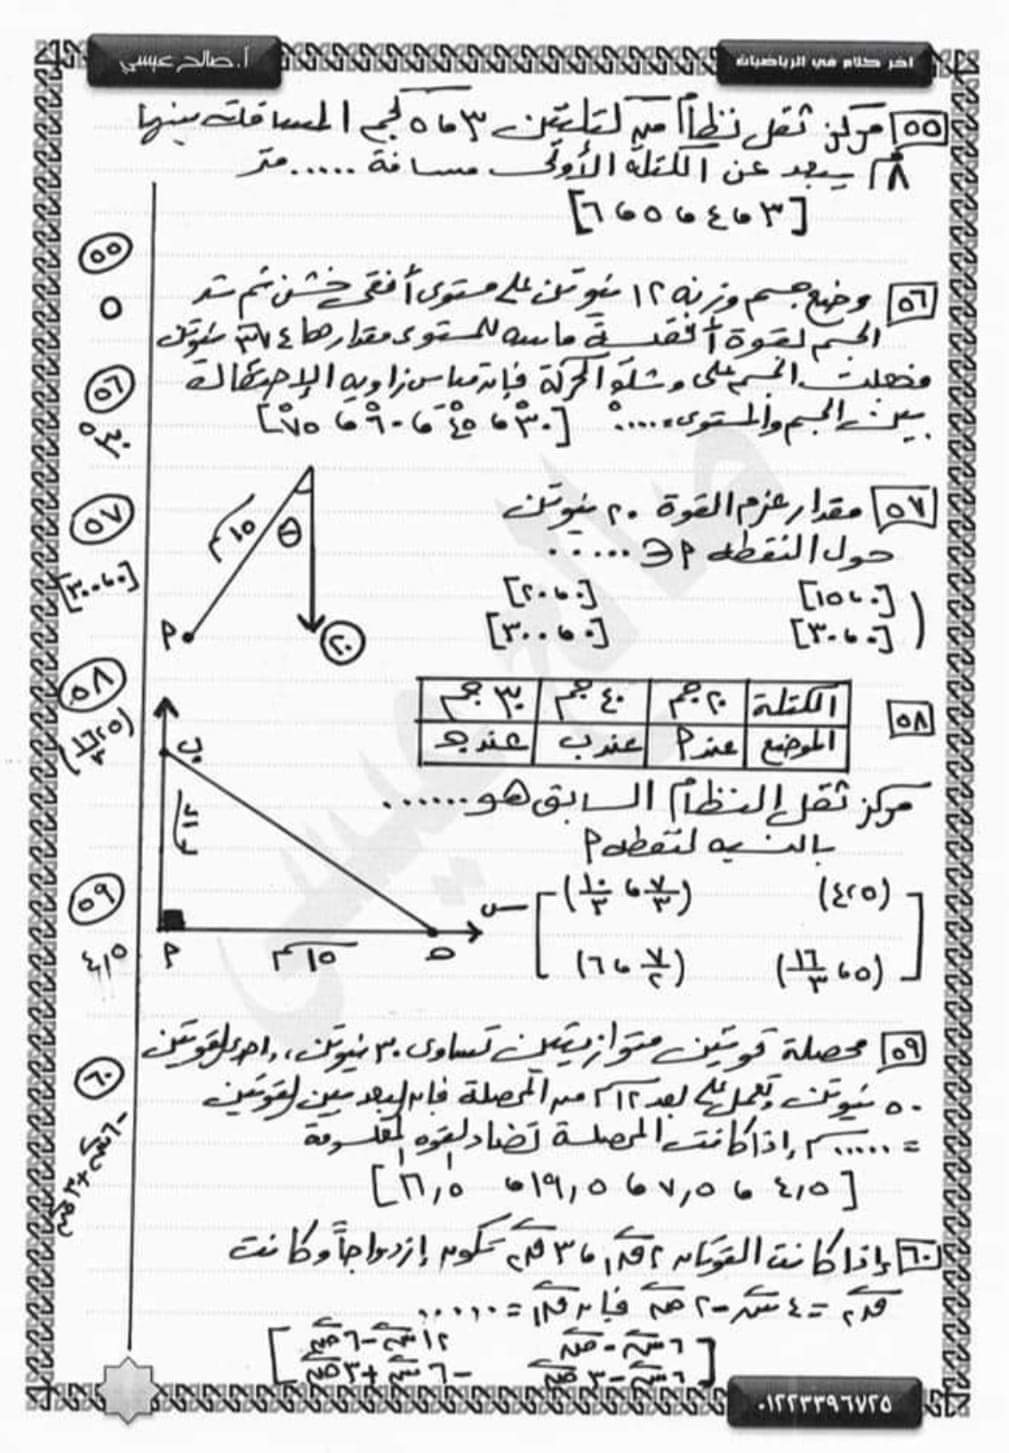 اخر كلام في الرياضيات
أ. صالح عيسي
٥٥ مركز ثقل نظام من كتلتين ٣ ، ٥ كجم المسافة بينهما
٨ م يبعد عن الكتلة الأولى مسافة ..... متر
[٣ ، ٤ ، ٥ ، ٦]
٥٦ وضع جسم وزنه ١٢ نيوتن على مستوى أفقى خشن ثم شد
الجسم بقوة أفقية ماسه للمستوى مقدارها ٤√٣ نيوتن
فجعلت الجسم على وشك الحركة فإن قياس زاوية الإحتكاك
بين الجسم والمستوى = .....°
[٣٠° ، ٤٥° ، ٦٠° ، ٧٥°]
٥٧ مقدار عزم القوة ٢٠ نيوتن
حول النقطه P ∈ ......
[٠ ، ١٥] [٠ ، ٢٠]
[٠ ، ٣٠] [٠ ، ٣٠٠]
١٥ م
θ
P
٢٠
٥٨
الكتلة ٢٠ جم ٤٠ جم ٣٠ جم
الموضع عند P عند ب عند هـ
مركز ثقل النظام السابق هو ......
بالنسبه لنقطه P
(٤ ، ٥) (٧/٣ ، ١٠/٣)
(٥ ، ١٦/٣) (٧/٢ ، ٦)
ب
١٢ م
P
١٥ م
هـ
س
٥٩ محصلة قوتين متوازيتين تساوى ٣٠ نيوتن ، احدى القوتين
٥٠ نيوتن وتعمل على بعد ١٢ م من المحصلة فإن البعد بين القوتين
= ...... م إذا كانت المحصلة تضاد القوه المعلومة
[٤,٥ ، ٧,٥ ، ١٩,٥ ، ١٦,٥]
٦٠ إذا كانت القوتان ٢ ق١ ، ٣ ق٢ تكون إزدواجاً وكانت
ق٢ = ٤ س - ٢ ص فإن ق١ = ......
٦ س - ص ١٢ س - ٦ ص
٦ س - ٣ ص - ٦ س + ٣ ص
٥٥
٥
٥٦
٣٠°
٥٧
[٠ ، ٣٠٠]
٥٨
(٥ ، ١٦/٣)
٥٩
٤,٥
٦٠
- ٦ س + ٣ ص
٠١٢٢٣٣٩٦٧٢٥